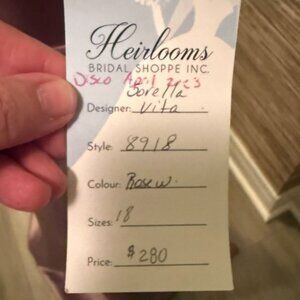 Heirlooms
BRIDAL SHOPPE INC.
Disco April 2023
Sorella
Designer: Vita
Style: 8918
Colour: Rose w.
Sizes: 18
Price: $280